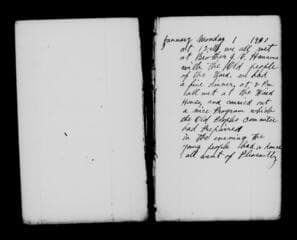 January Monday 1 19
at 12 we all met
at Brother J. Hansens
with the Old people
of the Ward. we had
a fine dinner, at 2 P.m.
all met at the Ward
House, and carried out
a nice Program which
the Old Peoples Committee
had Prepared
in the evening the
young people had a dance
all went of Pleasently